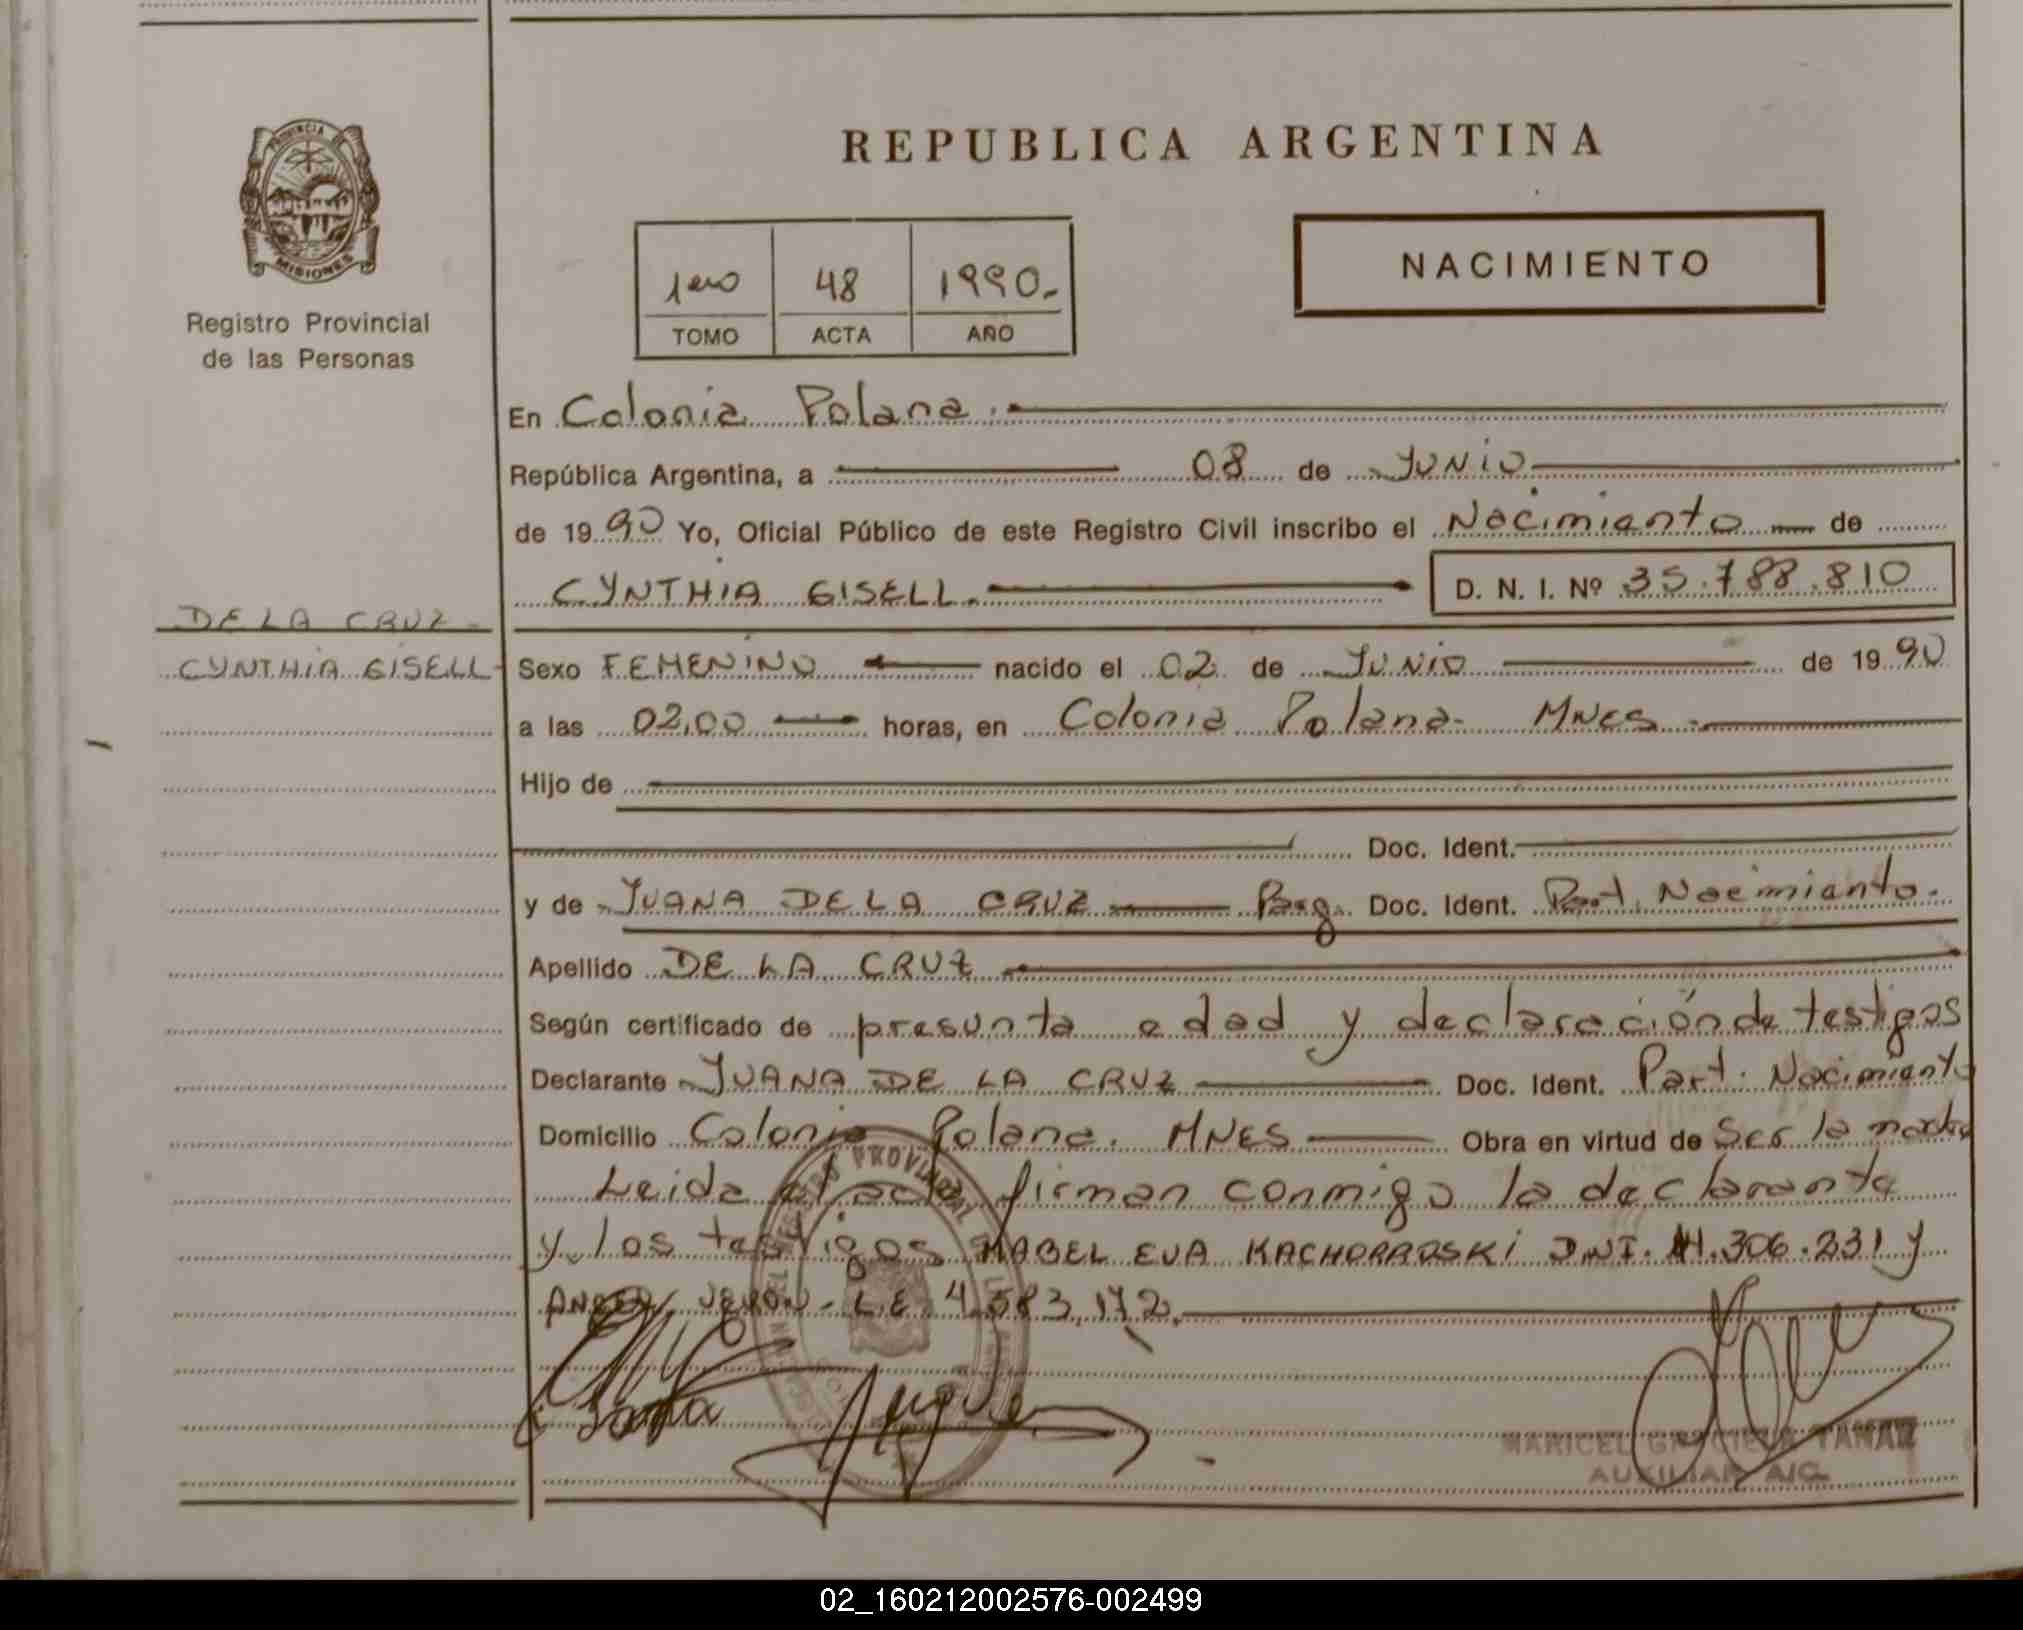 PROVINCIA
MISIONES
Registro Provincial
de las Personas
REPUBLICA ARGENTINA
1ero 48 1990.
TOMO ACTA AÑO
NACIMIENTO
En Colonia Polana.
República Argentina, a 08 de Junio
de 1990 Yo, Oficial Público de este Registro Civil inscribo el Nacimiento de
CYNTHIA GISELL. D. N. I. Nº 35.788.810
DE LA CRUZ
CYNTHIA GISELL
Sexo FEMENINO nacido el 02 de Junio de 1990
a las 02,00 horas, en Colonia Polana- MNES.
Hijo de
Doc. Ident.
y de JUANA DE LA CRUZ Doc. Ident. Part. Nacimiento.
Apellido DE LA CRUZ
Según certificado de presunta edad y declaración de testigos
Declarante JUANA DE LA CRUZ Doc. Ident. Part. Nacimiento
Domicilio Colonia Polana. MNES Obra en virtud de Ser la madre
Leida el acta firman conmigo la declarante
y los testigos MABEL EVA KACHOROSKI D.N.I. 306.231 y
L.E. 4.583.172.
MARICEL GRACIELA
AUXILIAR
02_160212002576-002499